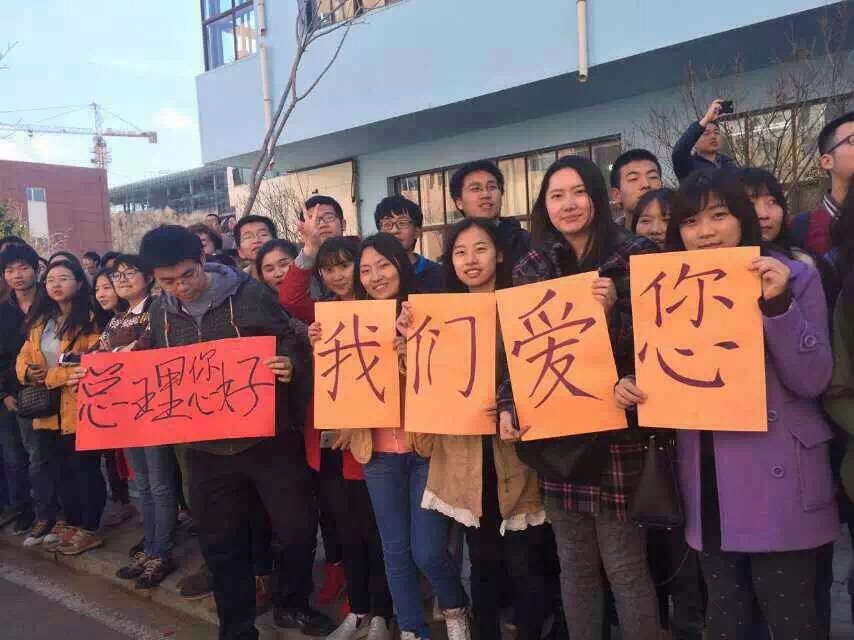 总理您好
我们爱您